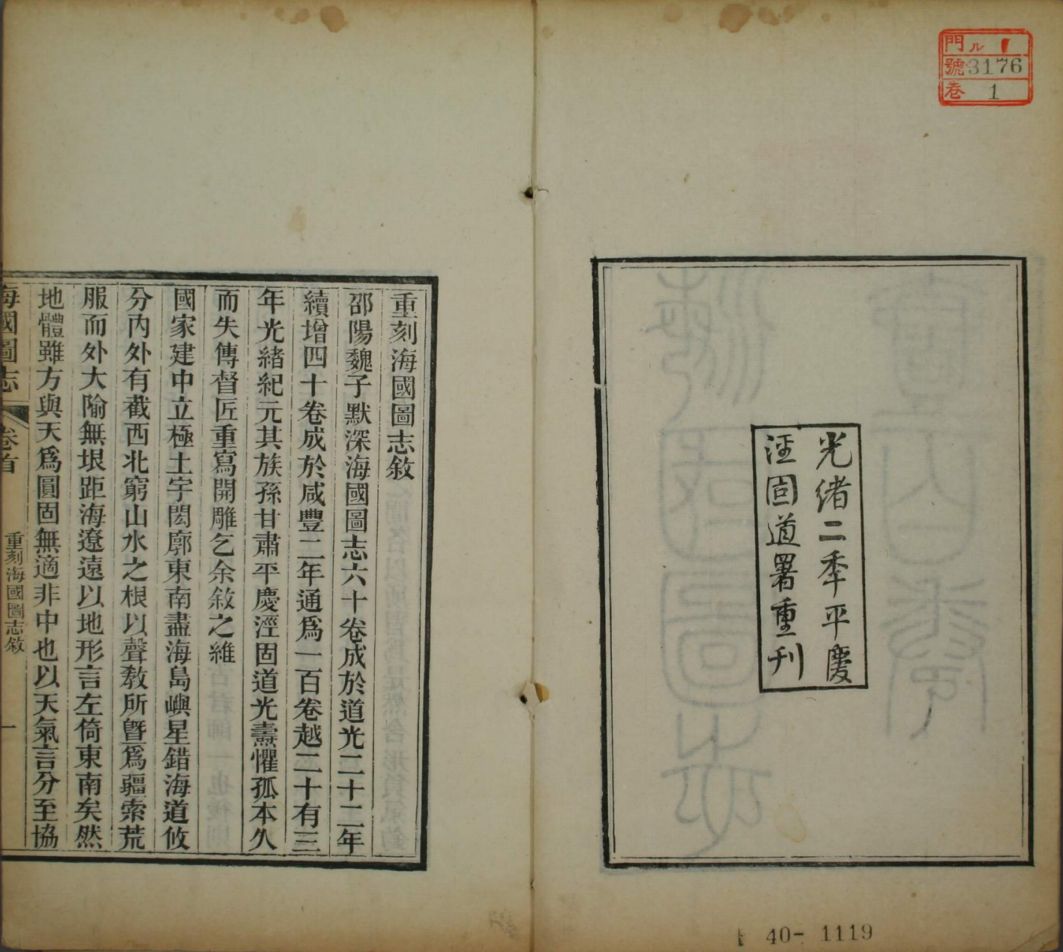 門ル1
號3176
卷1
光緒二季平慶
涇固道署重刊
40-1119
重刻海國圖志敘
邵陽魏子默深海國圖志六十卷成於道光二十二年
續增四十卷成於咸豐二年通爲一百卷越二十有三
年光緒紀元其族孫甘肅平慶涇固道光燾懼孤本久
而失傳督匠重寫開雕乞余敘之維
國家建中立極土宇閎廓東南盡海島嶼星錯海道攸
分內外有截西北窮山水之根以聲敎所曁爲疆索荒
服而外大隃無垠距海遼遠以地形言左倚東南矣然
地體雖方與天爲圓固無適非中也以天氣言分至協
海國圖志
卷首
重刻海國圖志敘
一